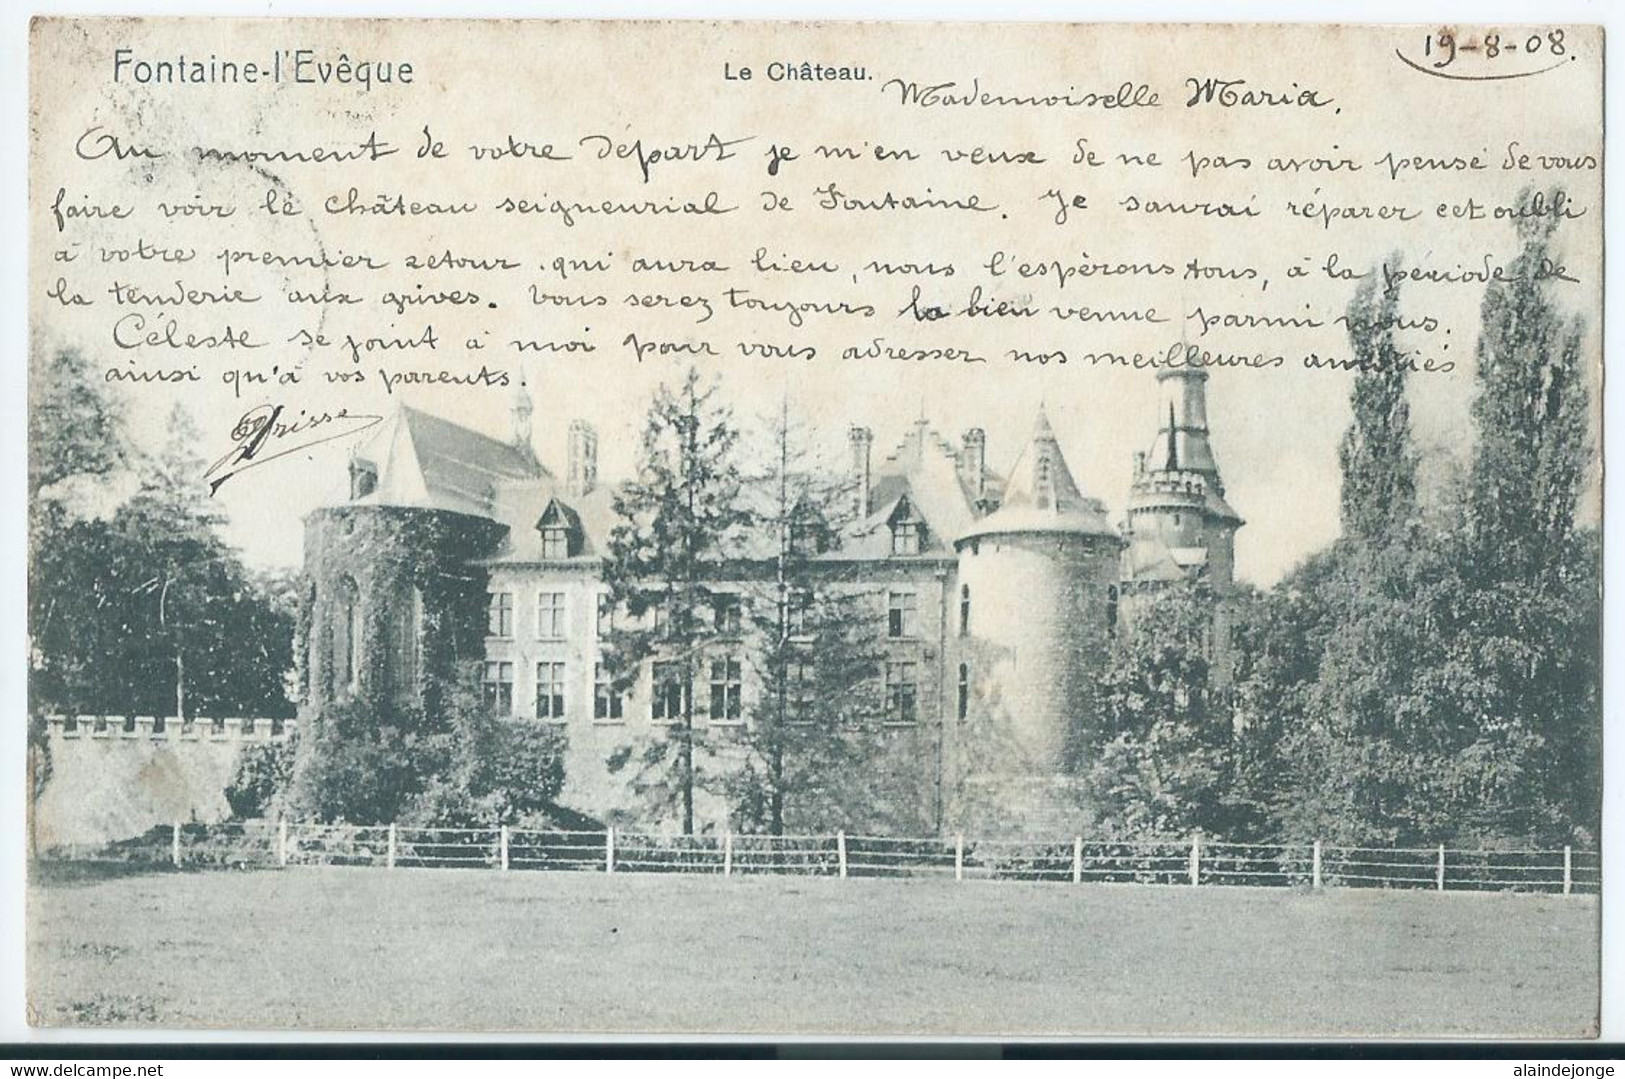 19-8-08.
Fontaine-l'Evêque
Le Château.
Mademoiselle Maria,
Au moment de votre départ je m'en veux de ne pas avoir pensé de vous
faire voir le château seigneurial de Fontaine. Je saurai réparer cet oubli
à votre premier retour qui aura lieu, nous l'espérons tous, à la période de
la tenderie aux grives. Vous serez toujours la bien venue parmi nous.
Céleste se joint à moi pour vous adresser nos meilleures amitiés
ainsi qu'à vos parents.
delcampe.net
alaindejonge